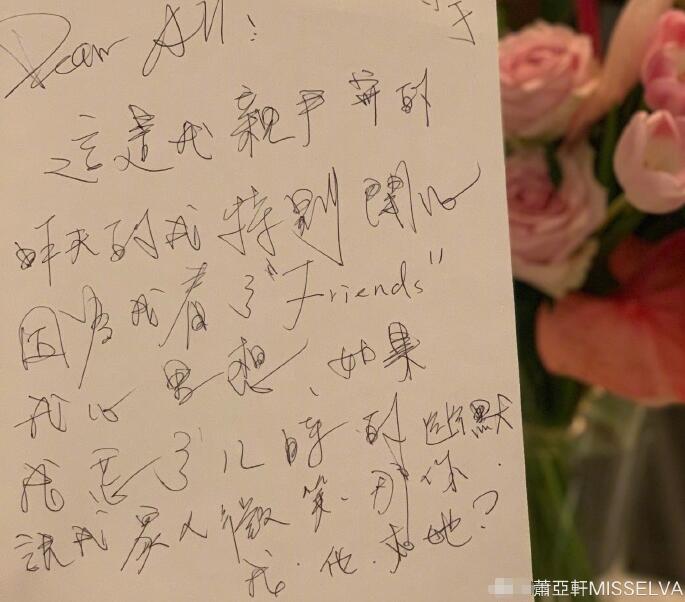 Dear All!
這是我親手寫的
昨天的我特別開心
因為我看了"Friends"
我心想、如果
我了儿時的幽默
說我人微笑.那你.
我.他.她?
蕭亞軒MISSELVA